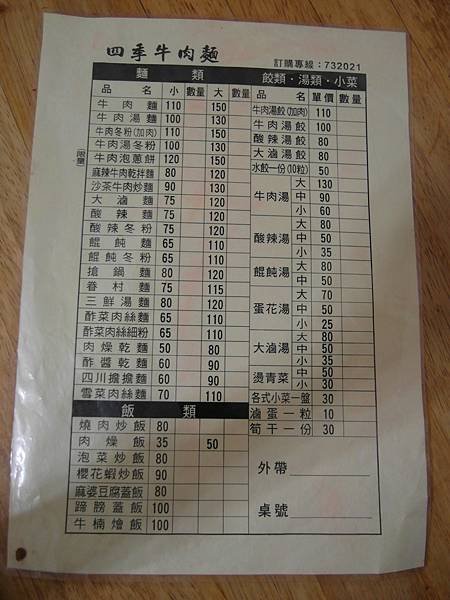 四季牛肉麵
訂購專線：732021
麵類
品名 小 數量 大 數量
牛肉麵 110 150
牛肉湯麵 100 130
牛肉冬粉(加肉) 110 150
牛肉湯冬粉 100 130
限量 牛肉泡蔥餅 120 150
麻辣牛肉乾拌麵 80 120
沙茶牛肉炒麵 90 130
大滷麵 75 120
酸辣麵 75 120
酸辣冬粉 75 120
餛飩麵 65 110
餛飩冬粉 65 110
搶鍋麵 80 120
眷村麵 75 115
三鮮湯麵 80 120
酢菜肉絲麵 65 110
酢菜肉絲細粉 65 110
肉燥乾麵 50 80
酢醬乾麵 60 90
四川擔擔麵 60 90
雪菜肉絲麵 70 110
飯類
燒肉炒飯 80
肉燥飯 35 50
泡菜炒飯 80
櫻花蝦炒飯 90
麻婆豆腐蓋飯 80
蹄膀蓋飯 100
牛楠燴飯 100
餃類・湯類・小菜
品名 單價 數量
牛肉湯餃(加肉) 110
牛肉湯餃 100
酸辣湯餃 80
大滷湯餃 80
水餃一份(10粒) 50
牛肉湯 大 130
中 90
小 60
酸辣湯 大 80
中 50
小 35
餛飩湯 大 80
中 50
蛋花湯 大 70
中 50
小 25
大滷湯 大 80
中 50
小 35
燙青菜 中 50
小 30
各式小菜一盤 30
滷蛋一粒 10
筍干一份 30
外帶
桌號